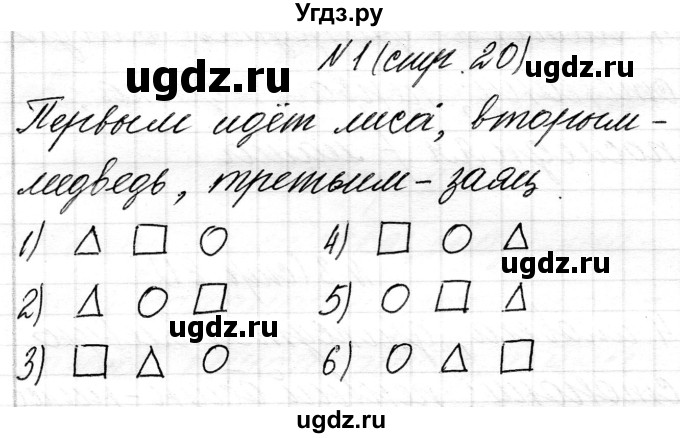 Угдз.ру
N 1 (стр. 20)
ugdz.ru
ugdz.ru
Первым идёт лиса, вторым -
медведь, третьим - заяц.
1) △ □ ○ 4) □ ○ △
ugdz.ru
2) △ ○ □ 5) ○ □ △
ugdz.ru
3) □ △ ○ 6) ○ △ □
ugdz.ru